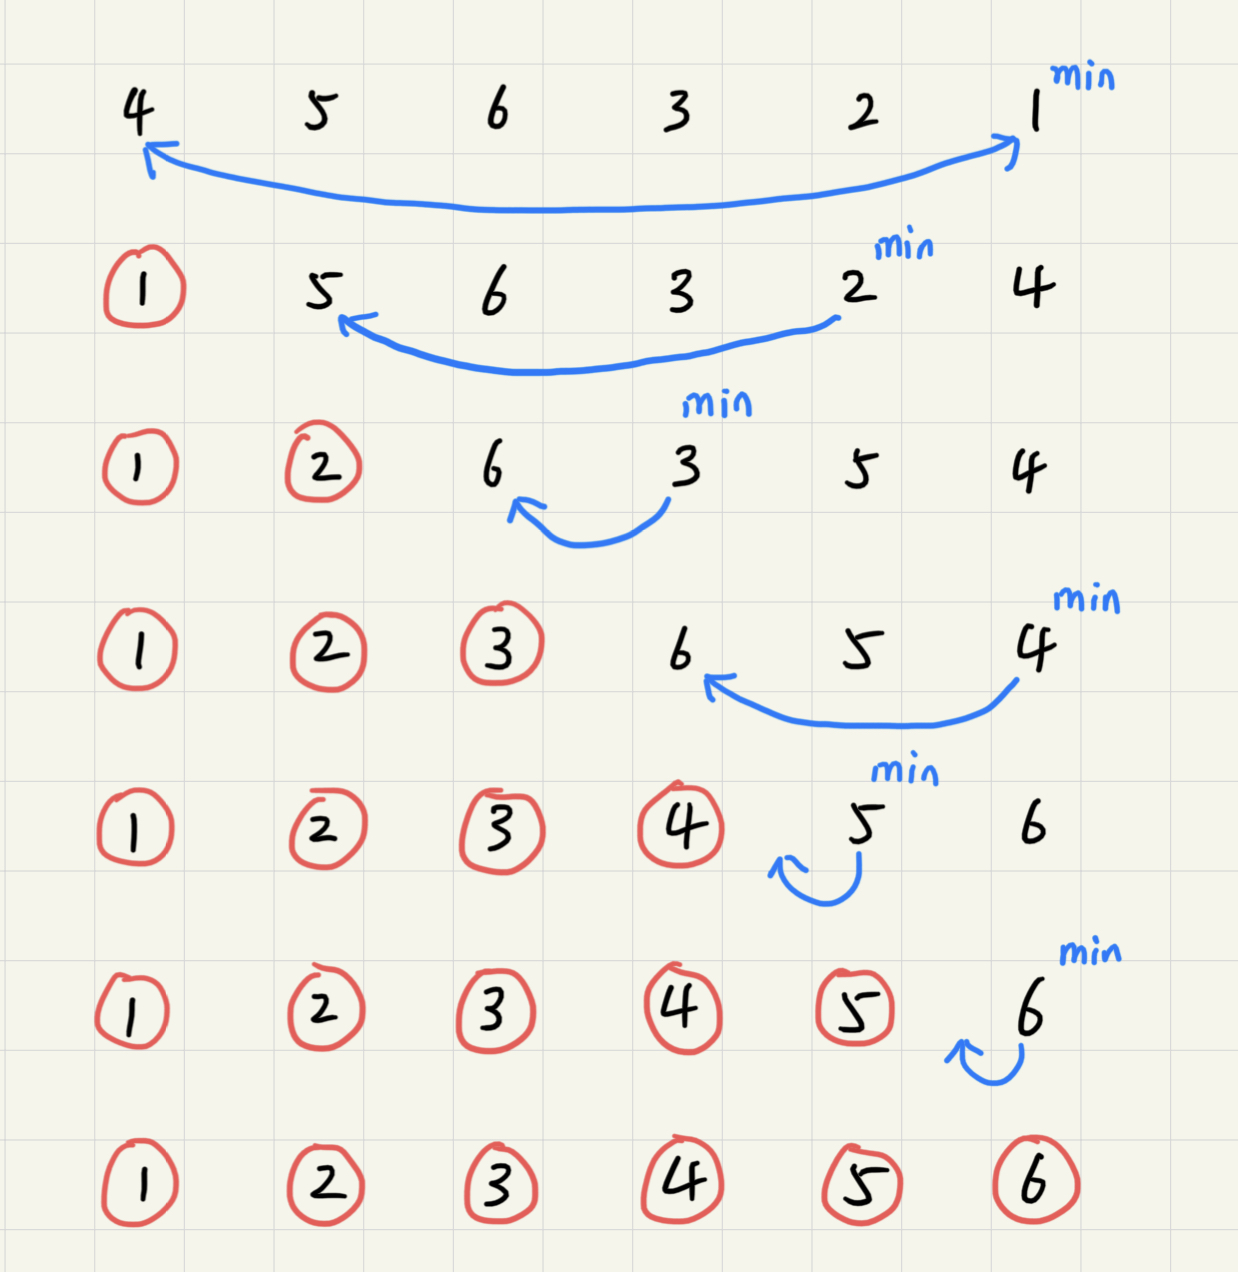 4 5 6 3 2 1 min
1 5 6 3 2 min 4
1 2 6 3 min 5 4
1 2 3 6 5 4 min
1 2 3 4 5 min 6
1 2 3 4 5 6 min
1 2 3 4 5 6